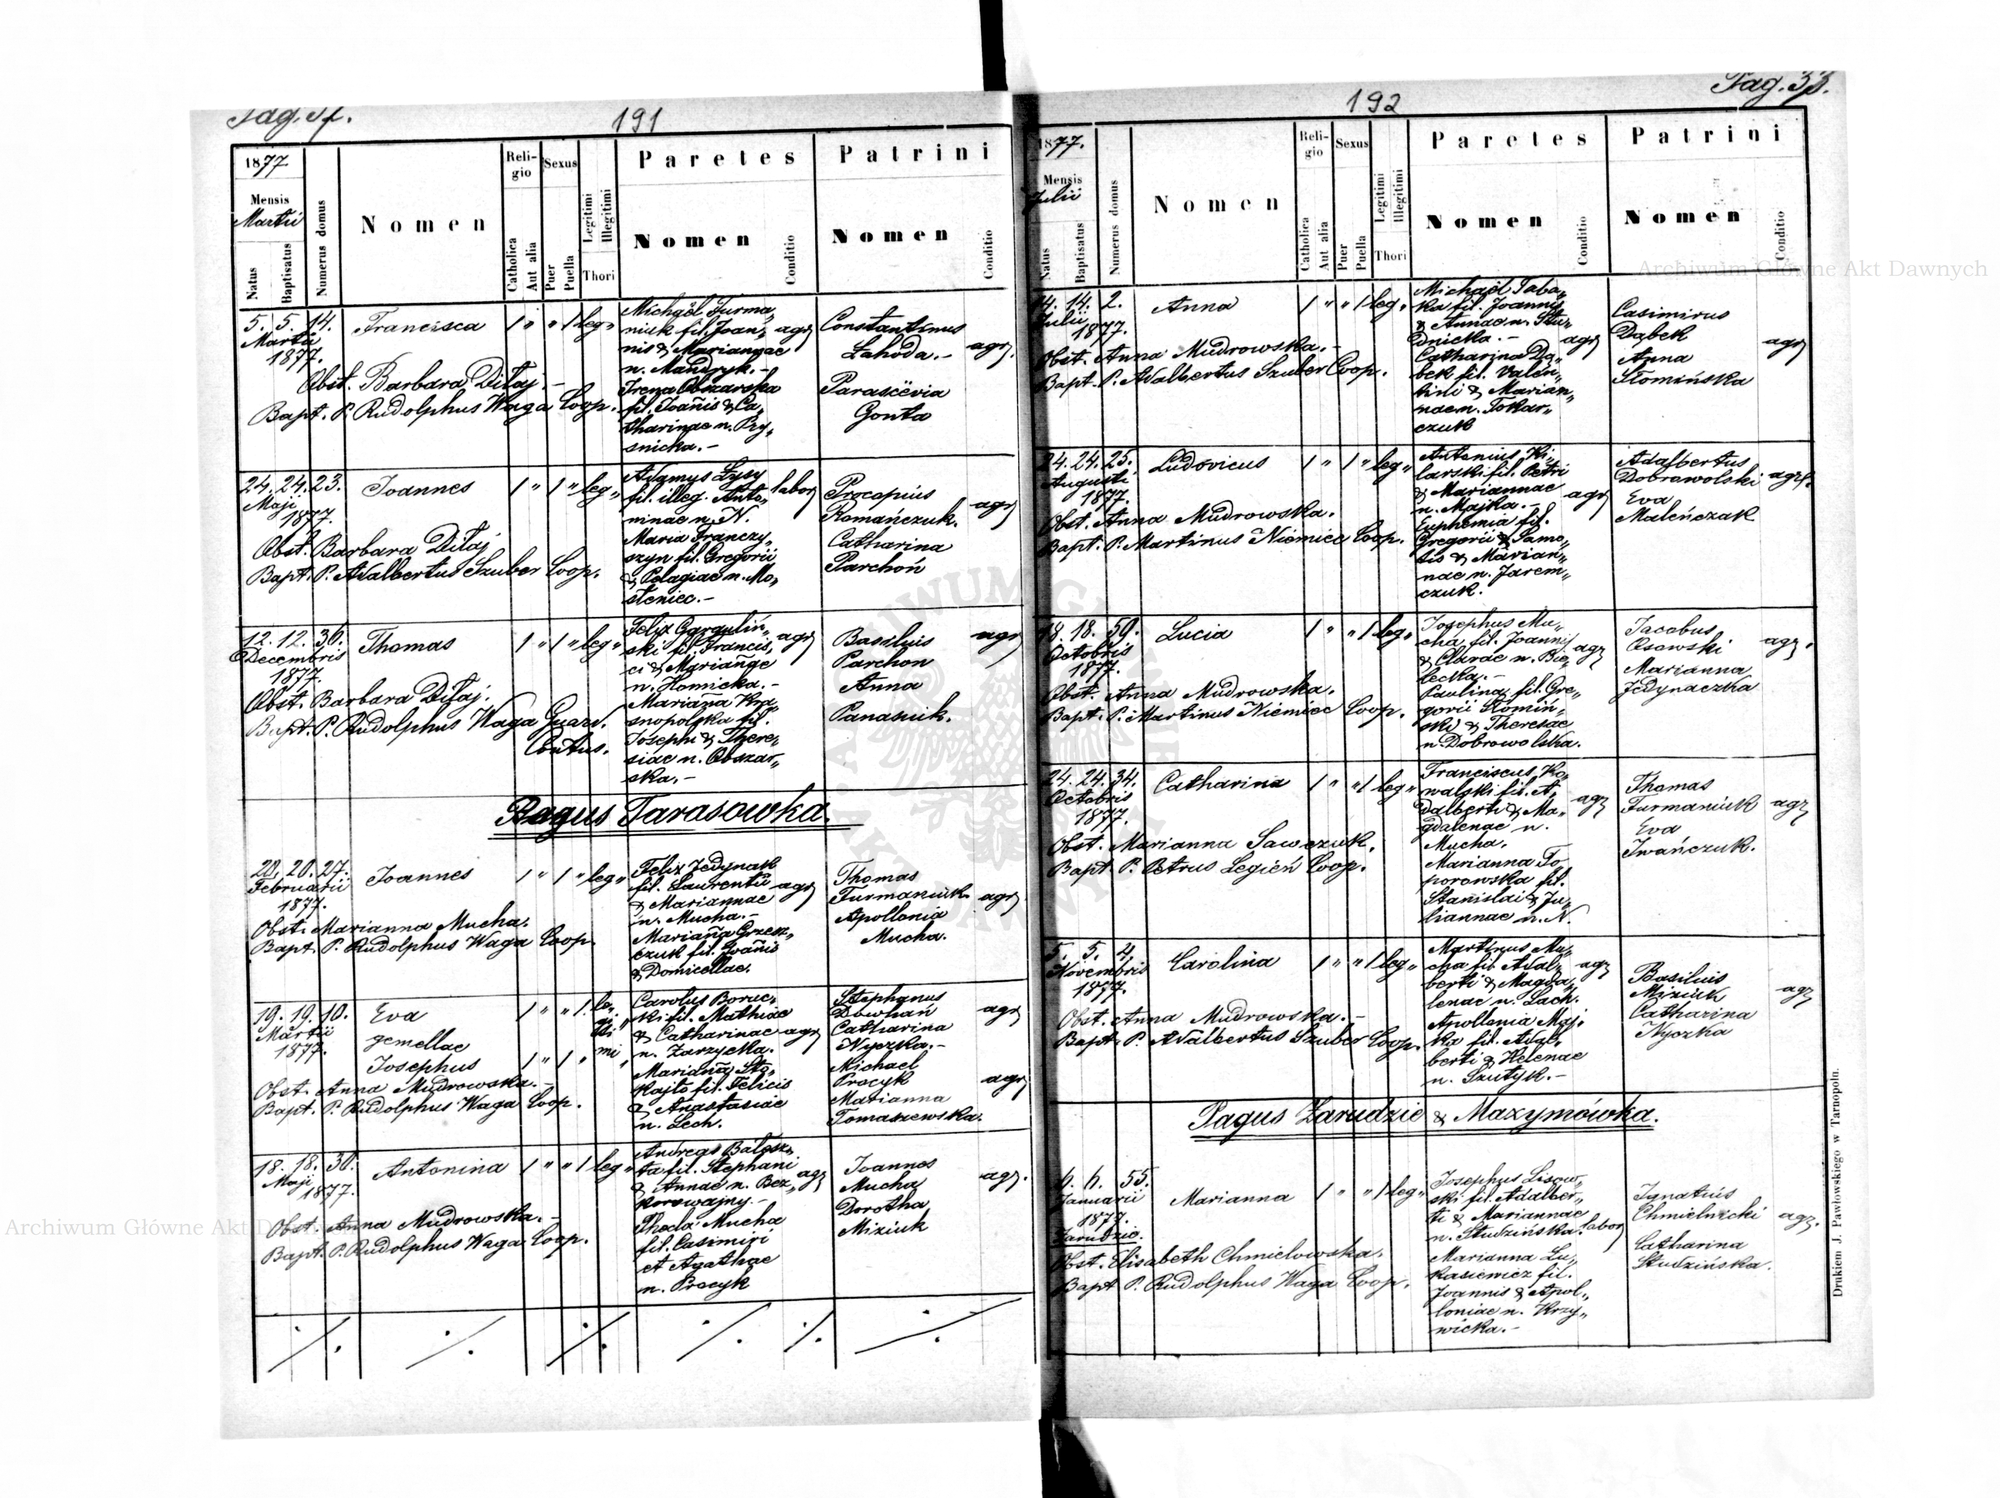 191
1877
Mensis
Martii
Natus
Baptisatus
Numerus domus
Nomen
Religio
Catholica
Aut alia
Sexus
Puer
Puella
Legitimi
Illegitimi
Thori
Paretes
Nomen
Conditio
Patrini
Nomen
Conditio
5. 5. 14.
Martii
1877.
Francisca
1 " " 1 leg "
Obst. Barbara Ditaj.-
Bapt. P. Rudolphus Waga Coop.
Michaël Furma„
niuk fil. Joan„
nis & Mariannae
n. Mandryk.-
Irena Obszarska
fil. Joannis & Ca„
tharinae n. Pry„
snicka.-
agr
Constantinus
Lahoda.-
Parascevia
Gonta
agr.
24. 24. 23.
Maji
1877.
Joannes
1 " 1 " leg "
Obst. Barbara Ditaj
Bapt. P. Adalbertus Szuber Coop.
Adamus Łysy
fil. illeg. Anto„
ninae n. N.
Maria Franczy„
szyn fil. Gregorii
& Pelagiae n. Mo„
steniec.-
labor
Procopius
Romańczuk.
Catharina
Parchoń
agr
12. 12. 36.
Decembris
1877.
Thomas
1 " 1 " leg "
Obst. Barbara Ditaj.
Bapt. P. Rudolphus Waga Guard.
Contus.
Felix Garguliń„
ski fil. Francis„
ci & Marianae
n. Homicka.-
Mariana Kra„
snopolska fil.
Josephi & There„
siae n. Obszar„
ska.-
agr
Basilius
Parchon
Anna
Panasiuk.
agr
Pagus Tarasowka.
20. 20. 27.
Februarii
1877.
Joannes
1 " 1 " leg "
Obst. Marianna Mucha.
Bapt. P. Rudolphus Waga Coop.
Felix Jedynak
fil. Laurentii
& Mariannae
n. Mucha.-
Mariana Grzesz„
czuk fil. Joanis
& Domicellae.
agr
Thomas
Furmaniuk.
Apollonia
Mucha.
agr
19. 19. 10.
Martii
1877.
Eva
gemellae
Josephus
1 " " 1
1 " 1 "
Obst. Anna Mudrowska.-
Bapt. P. Rudolphus Waga Coop.
Carolus Boruc„
ki fil. Mathiae
& Catharinae
n. Zarzycka.
Mariana Sto„
kajto fil. Felicis
& Anastasiae
n. Lech.
agr
Stephanus
Dowhań
Catharina
Nyczka.-
Michael
Procyk
Marianna
Tomaszewska.
agr
agr
18. 18. 30.
Maji
1877.
Antonina
1 " " 1 leg "
Obst. Anna Mudrowska.-
Bapt. P. Rudolphus Waga Coop.
Andreas Balosz„
ta fil. Stephani
& Annae n. Bez„
korowajny.-
Thecla Mucha
fil. Casimiri
et Agathae
n. Procyk
agr
Joannes
Mucha
Dorotha
Miziuk
agr.
Pag. 33.
192
1877.
Mensis
Julii
Natus
Baptisatus
Numerus domus
Nomen
Religio
Catholica
Aut alia
Sexus
Puer
Puella
Legitimi
Illegitimi
Thori
Paretes
Nomen
Conditio
Patrini
Nomen
Conditio
14. 14. 2.
Julii
1877.
Anna
1 " " 1 leg "
Obst. Anna Mudrowska.-
Bapt. P. Adalbertus Szuber Coop.
Michaël Taba„
ka fil. Joannis
& Annae n. Stu„
dnicka.-
Catharina Dą„
bek fil. Valen„
tini & Marian„
nae n. Tokar„
czuk
agr
Casimirus
Dąbek
Anna
Słomińska
agr
24. 24. 25.
Augusti
1877.
Ludovicus
1 " 1 " leg "
Obst. Anna Mudrowska.
Bapt. P. Martinus Niemiec Coop.
Antonius Ki„
larski fil. Petri
& Mariannae
n. Majka.
Euphemia fil.
Gregorii & Samo„
lis & Marian„
nae n. Jarem„
czuk.
agr
Adalbertus
Dobrawolski
Eva
Maleńczak
agr.
18. 18. 59.
Octobris
1877.
Lucia
1 " " 1 leg "
Obst. Anna Mudrowska.
Bapt. P. Martinus Niemiec Coop.
Josephus Mu„
cha fil. Joannis
& Clarae n. Bie„
lecka.-
Paulina fil. Gre„
gorii Słomiń„
ski & Theresae
n. Dobrowolska.
agr
Jacobus
Osowski
Marianna
Jedynaczka
agr.
24. 24. 34.
Octobris
1877.
Catharina
1 " " 1 leg "
Obst. Marianna Sawczuk.
Bapt. P. Petrus Legień Coop.
Franciscus Ko„
walski fil. A„
dalberti & Ma„
gdalenae n.
Mucha.
Marianna To„
porowska fil.
Stanislai & Ju„
liannae n. N.
agr
Thomas
Furmaniuk
Eva
Iwańczuk.
agr
5. 5. 4.
Novembris
1877.
Carolina
1 " " 1 leg "
Obst. Anna Mudrowska.-
Bapt. P. Adalbertus Szuber Coop.
Martinus Mu„
cha fil. Adal„
berti & Magda„
lenae n. Lach.
Apollonia Maj„
ka fil. Adal„
berti & Helenae
n. Szutyk.-
agr
Basilius
Miziuk
Catharina
Nyczka
agr
Pagus Zarudzie & Maxymówka.
6. 6. 55.
Januarii
1877.
Zarudzie.
Marianna
1 " " 1 leg "
Obst. Elisabeth Chmielowska.
Bapt P. Rudolphus Waga Coop.
Josephus Lisow„
ski fil. Adalber„
ti & Mariannae
n. Studzińska.
Marianna Łu„
kasiewicz fil.
Joannis & Apol„
loniae n. Krzy„
wicka.-
labor
Ignatius
Chmielnicki
Catharina
Studzińska.
agr.
Drukiem J. Pawłowskiego w Tarnopolu.
Archiwum Główne Akt Dawnych
Archiwum Główne Akt Dawnych